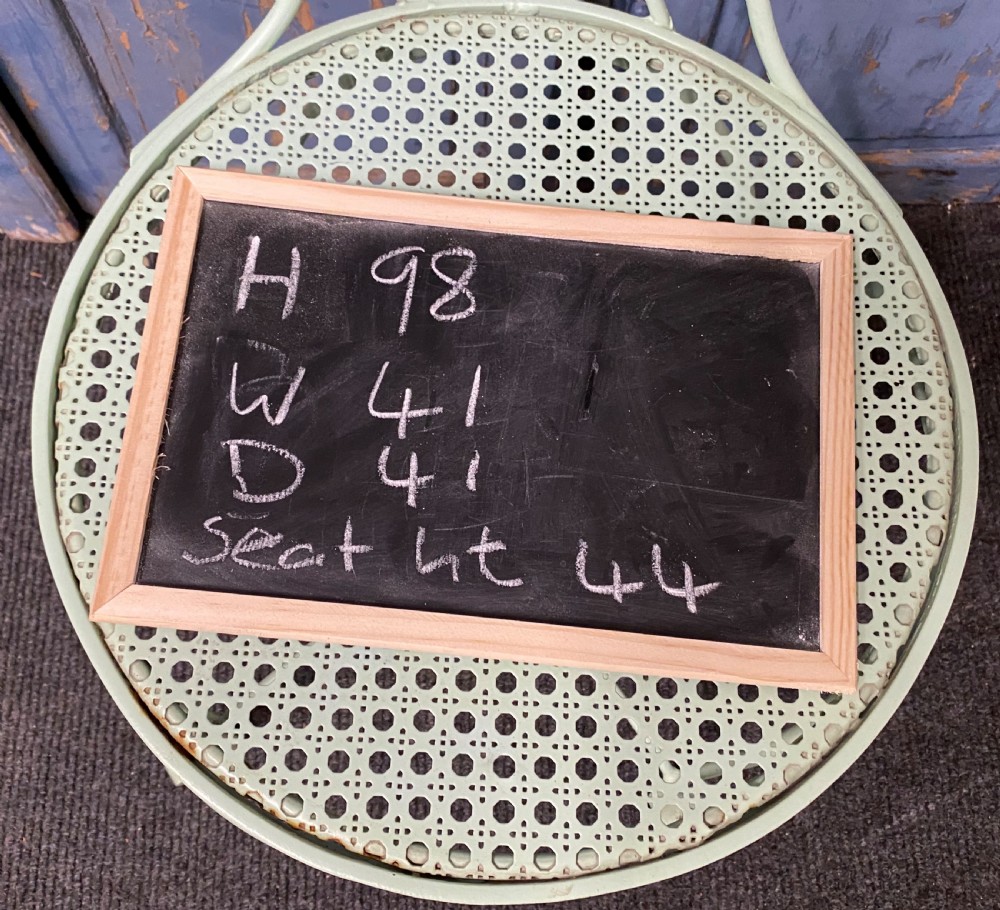 H 98
W 41
D 41
Seat ht 44